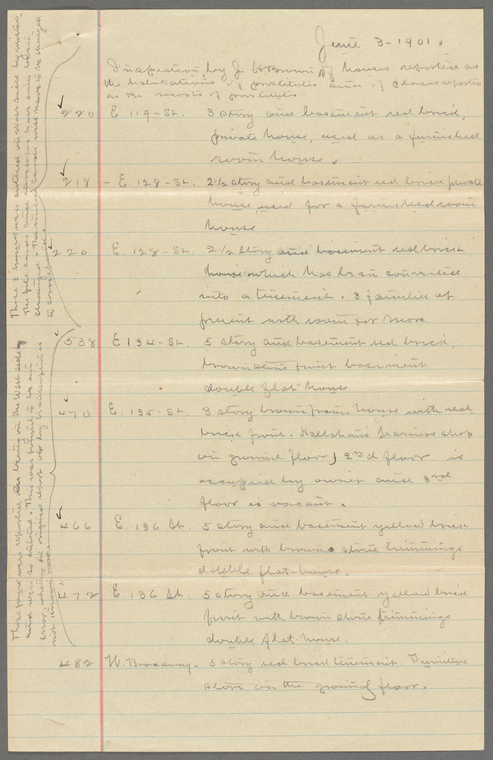 June 3-1901.
Inspection by J. of houses reported as
the habitations of prostitutes and of places reported
as the resorts of prostitutes.
220 E. 119-St. 3 story and basement red brick,
private house, used as a furnished
room house.
218 - E. 128-St. 2 1/2 story and basement red brick private
house used for a furnished room
house
220 E. 128-St. 2 1/2 story and basement red brick
house which has been converted
into a tenement. 3 families at
present with room for more
538 E 134-St. 5 story and basement red brick,
brownstone front basement
double flat house
470 E. 135-St. 3 story brown frame house with red
brick front. harness shop
on ground floor, 2nd floor is
occupied by owner and 3rd
floor is vacant.
466 E. 136 St. 5 story and basement yellow brick
front with brown stone trimmings
double flat-house.
472 E. 136 St. 5 story and basement yellow brick
front with brown stone trimmings
double flat house.
482 W. Broadway - 5 story red brick tenement. Furniture
store on the ground floor.
These 3 houses were entered on West side by mistake.
The file cards and
changed. The street cards will have to be changed
to
These four were reported as being on the West side
and were so entered. This was found to be an
error in original report